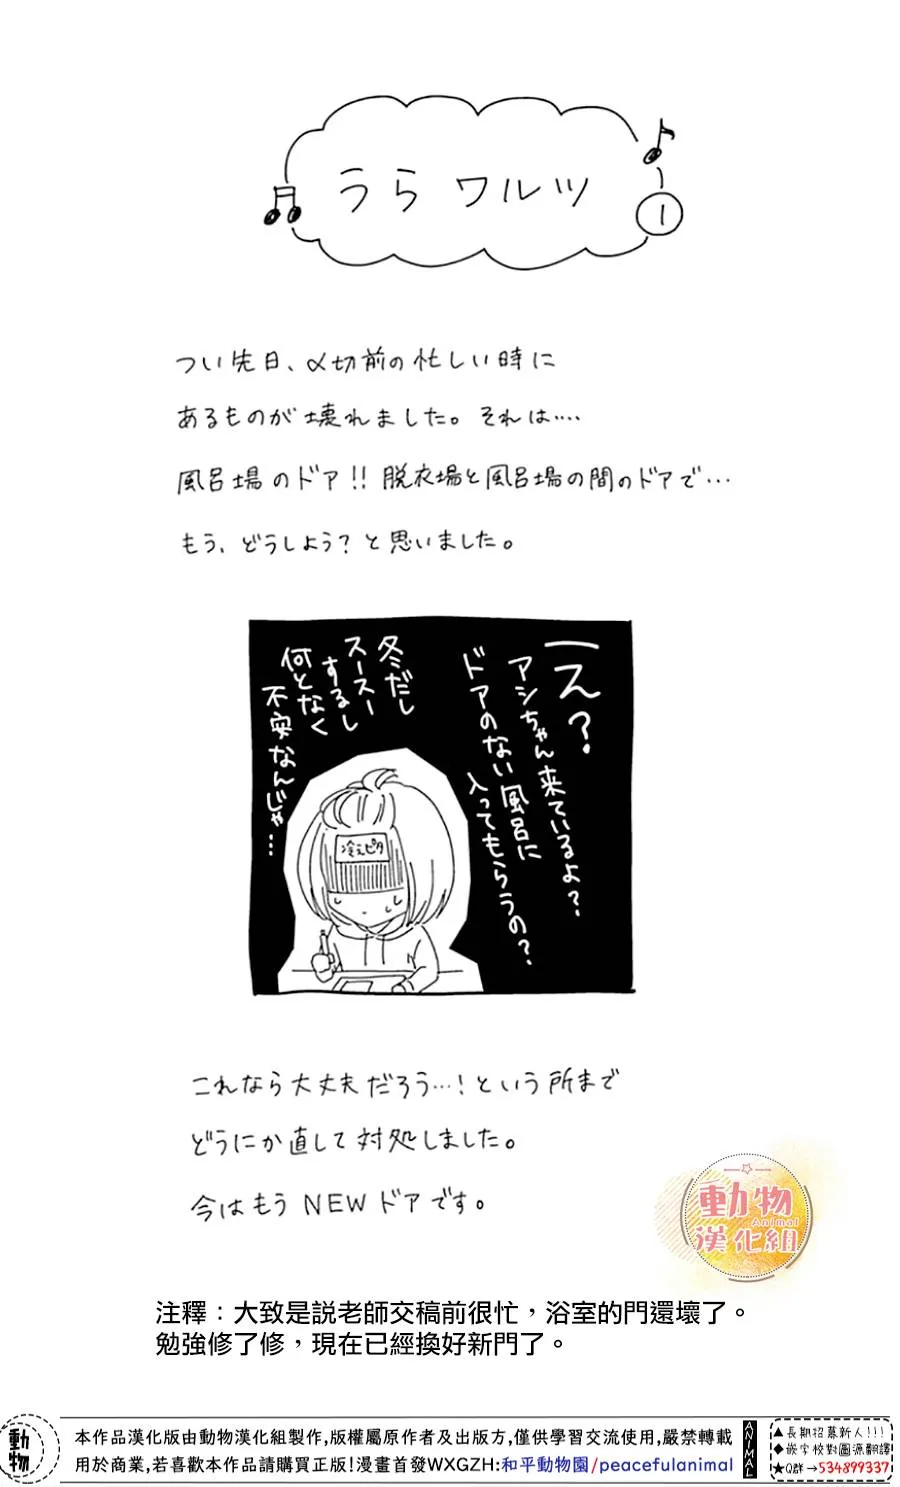 うら ワルツ
1
つい先日、〆切前の忙しい時に
あるものが壊れました。それは‥‥
風呂場のドア!! 脱衣場と風呂場の間のドアで…
もう、どうしよう?と思いました。
一え?
アシちゃん来ているよ?
ドアのない風呂に
入ってもらうの?
冬だし
スースー
するし
何となく
不安なんじゃ…
冷えピタ
これなら大丈夫だろう…!という所まで
どうにか直して対処しました。
今はもうNEWドアです。
動物
Animal
漢化組
注釋：大致是説老師交稿前很忙，浴室的門還壞了。
勉強修了修，現在已經換好新門了。
動物
本作品漢化版由動物漢化組製作,版權屬原作者及出版方,僅供學習交流使用,嚴禁轉載
用於商業,若喜歡本作品請購買正版!漫畫首發WXGZH:和平動物園/peacefulanimal
ANIMAL
▲長期招募新人!!!
◆嵌字校對圖源翻譯
★Q群→534899337